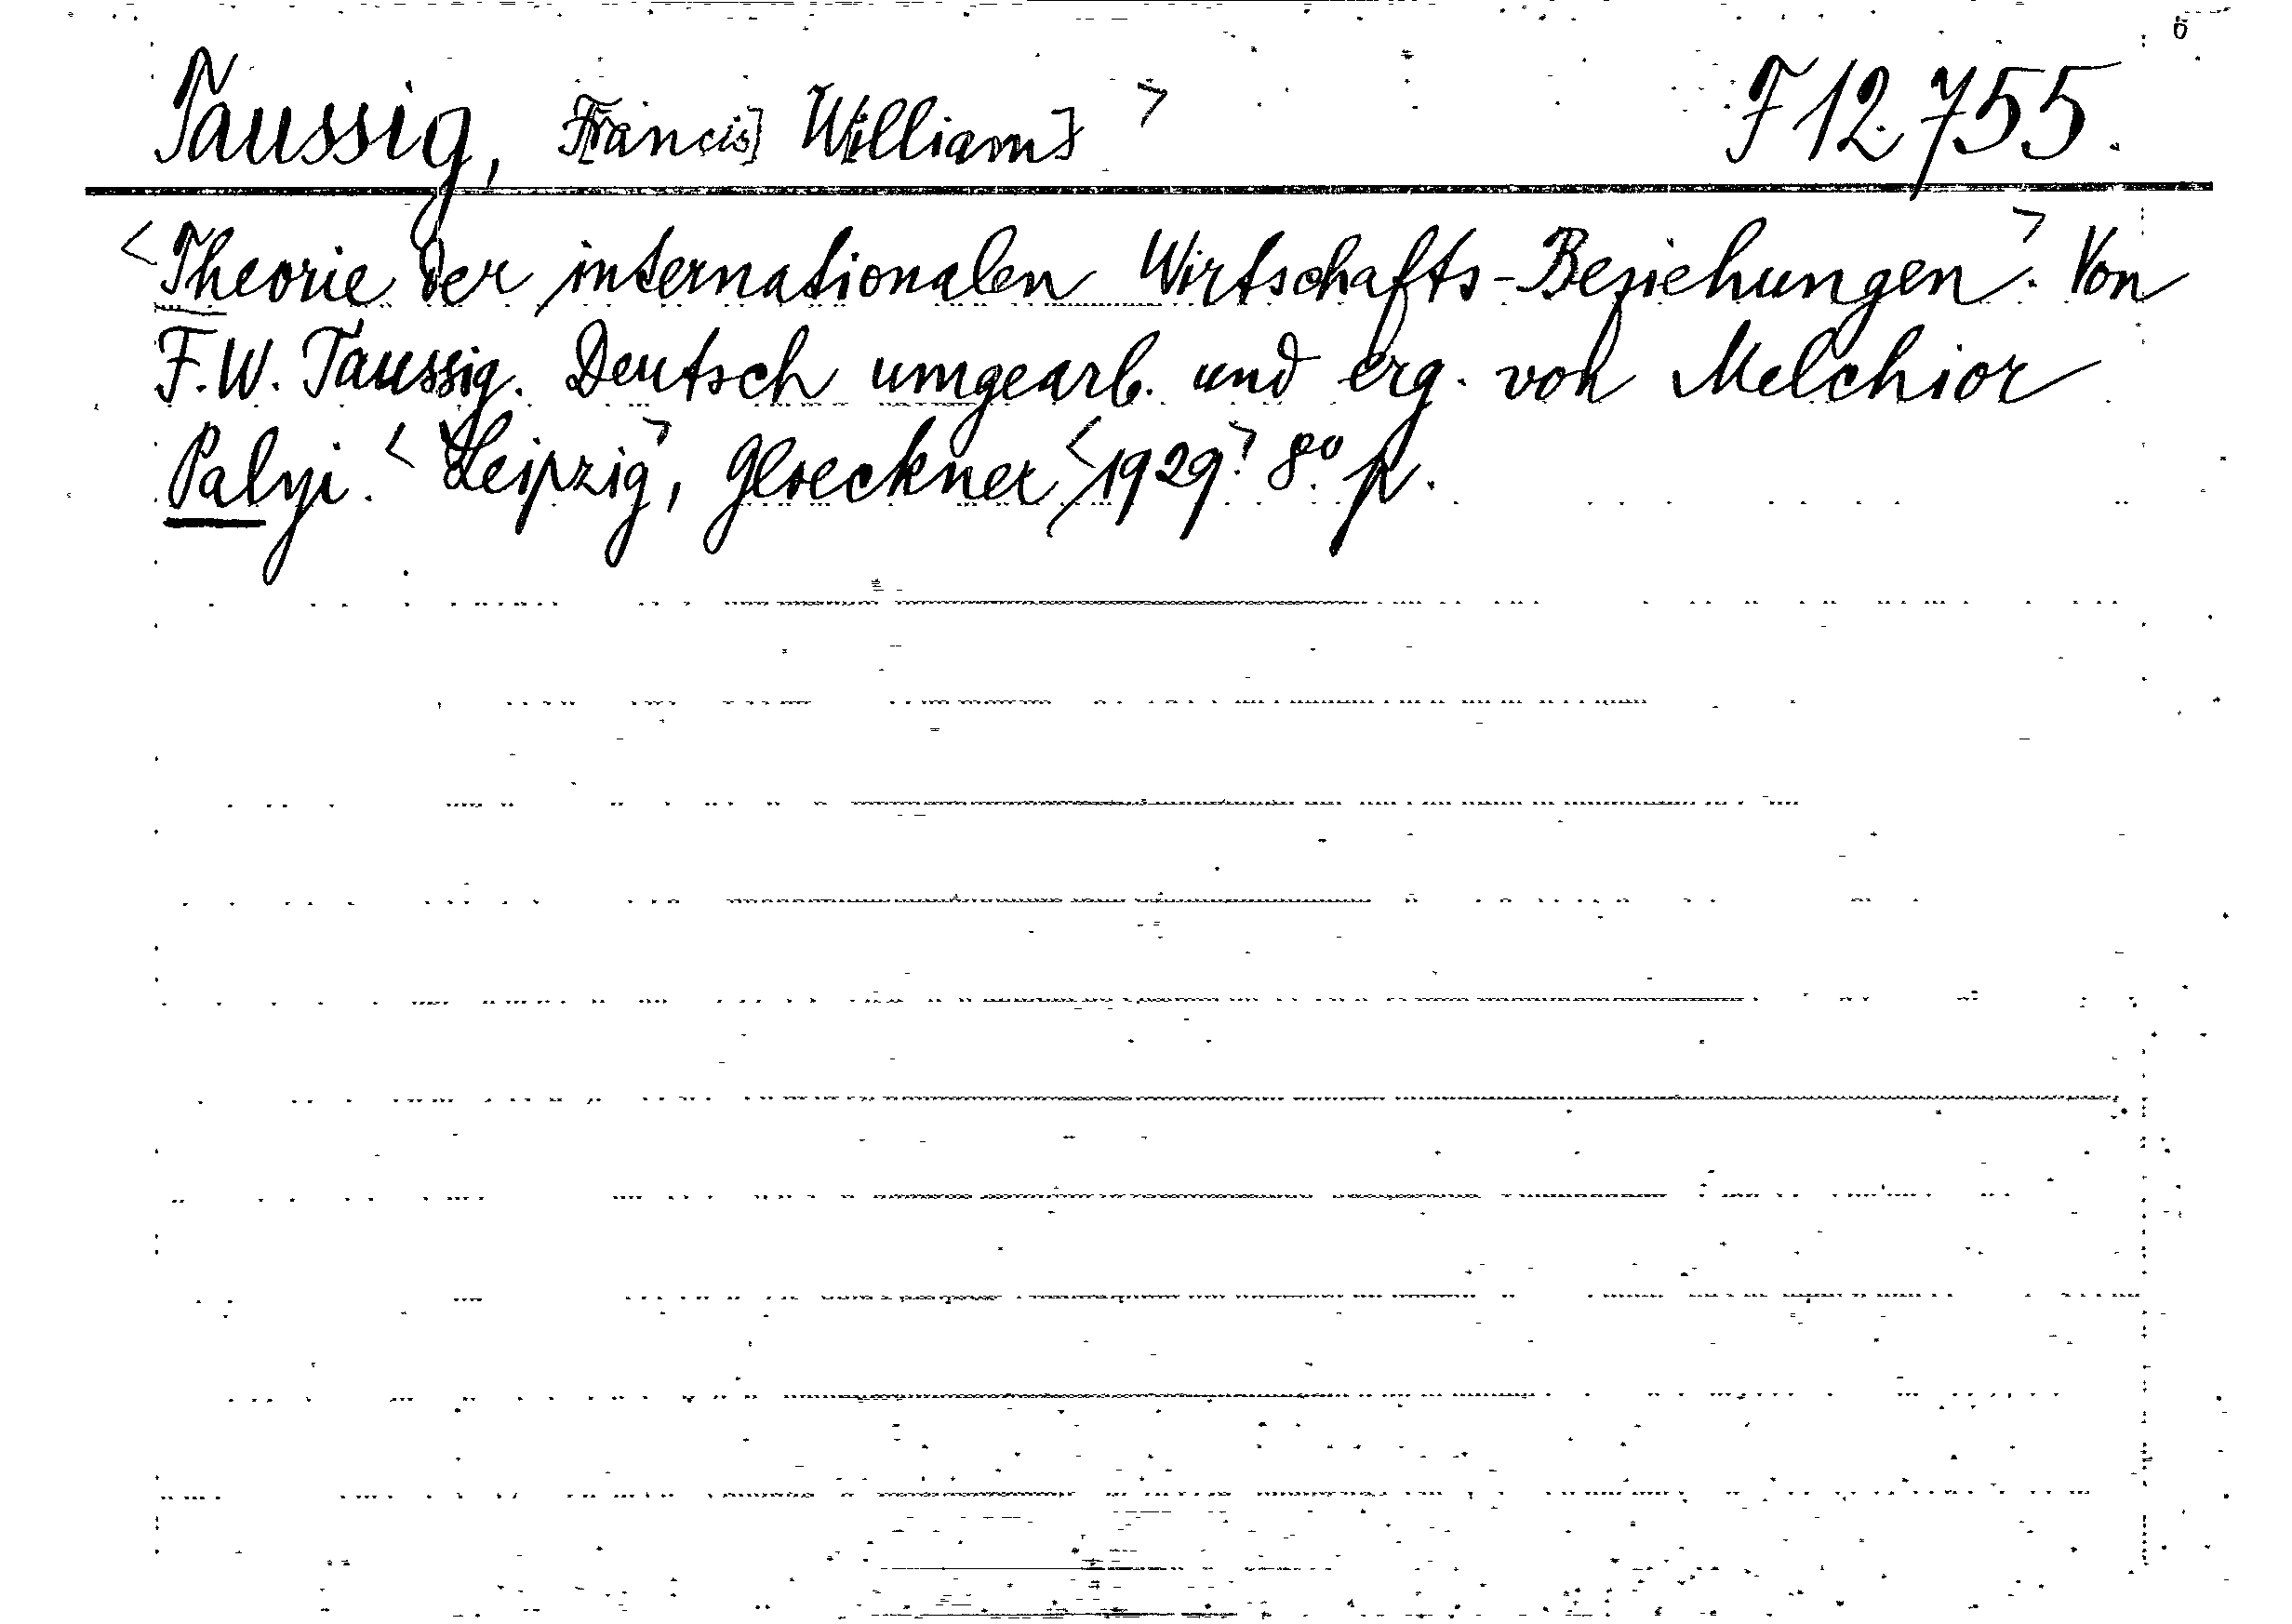 Taussig, F[rancis] W[illiam] > F 12.755.
<Theorie der internationalen Wirtschafts-Beziehungen>. Von
F.W. Taussig. Deutsch umgearb. und erg. von Melchior
Palyi. <Leipzig>, Gloeckner <1929>. 8°